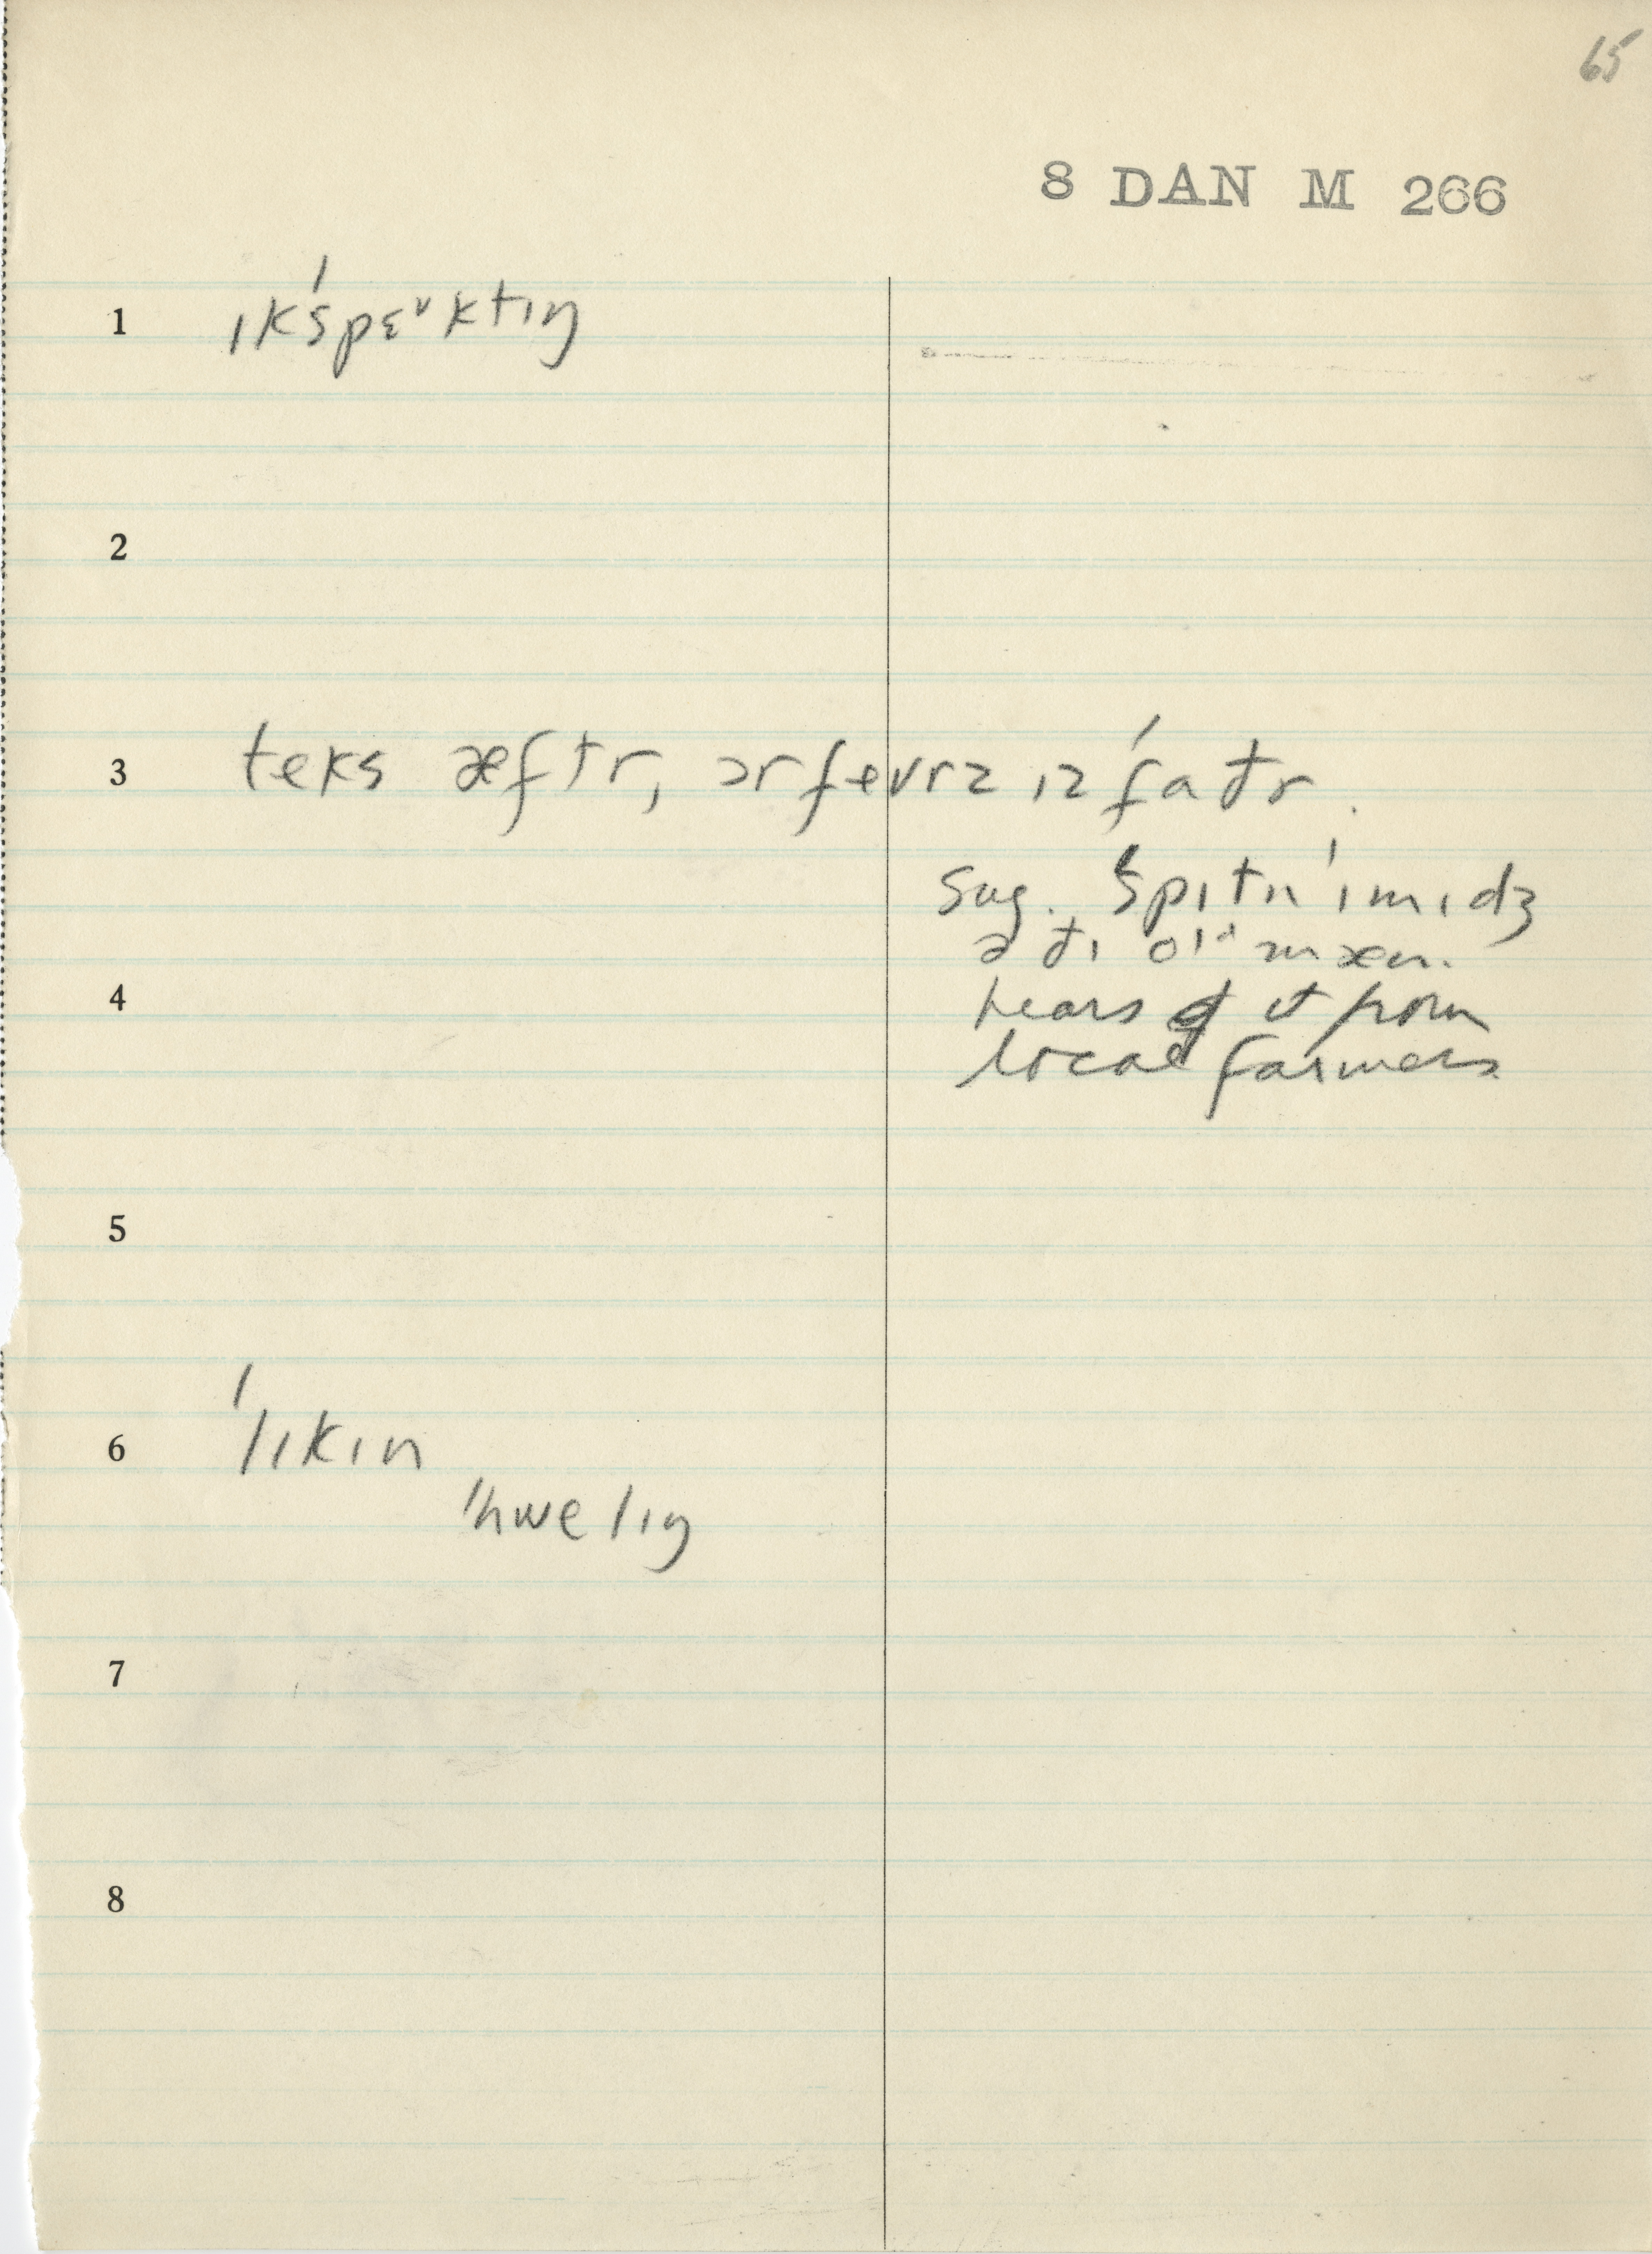 65
8 DAN M 266
1 ɪkˈspɛᵛktɪŋ
2
3 teks æftr, ɔr fevrz ɪz ˈfaðr.
sug. ˈspɪtn ˈɪmɪdʒ
ə ðɪ olᵈ mæn.
hears of it from
local farmers
4
5
6 ˈlɪkɪn
ˈhwelɪŋ
7
8